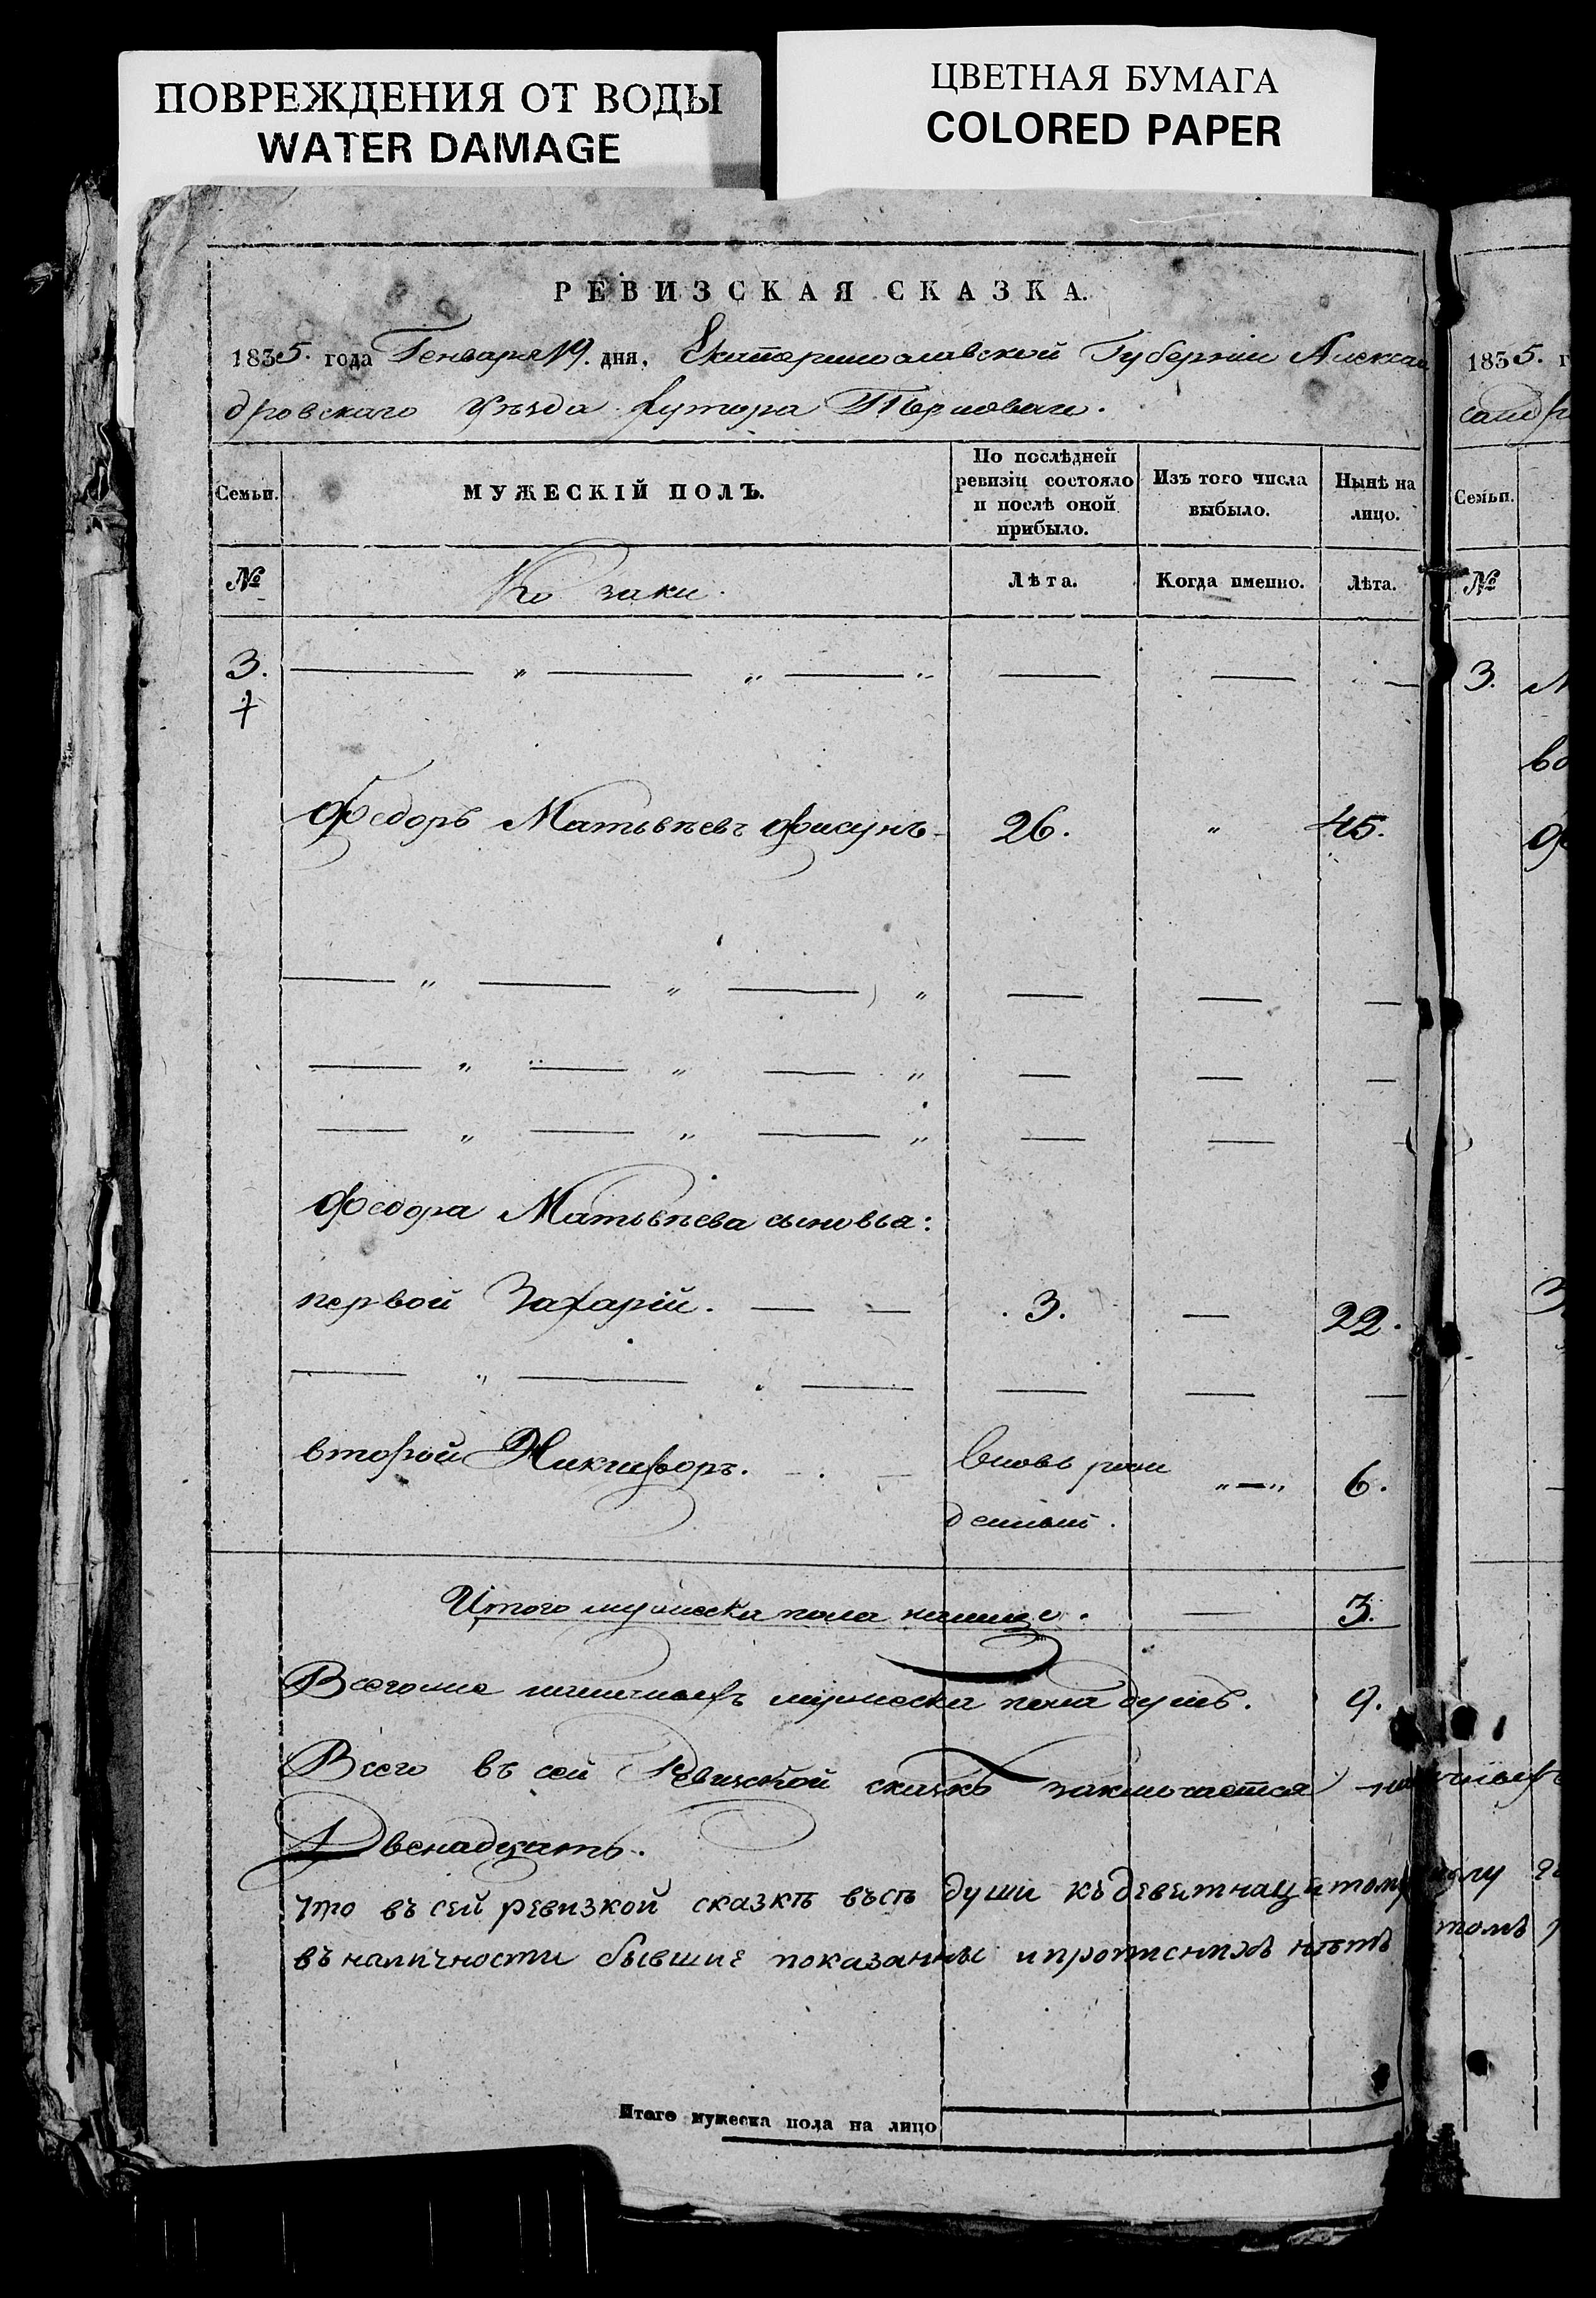 ПОВРЕЖДЕНИЯ ОТ ВОДЫ
WATER DAMAGE
ЦВЕТНАЯ БУМАГА
COLORED PAPER
РЕВИЗСКАЯ СКАЗКА.
1835. года Генваря 19. дня, Екатеринославской Губерніи Алексан
дровскаго Уѣзда хутора Терноваго.
Семьи.
МУЖЕСКІЙ ПОЛЪ.
По послѣдней ревизіи состояло и послѣ оной прибыло.
Изъ того числа выбыло.
Нынѣ на лицо.
№
Козаки.
Лѣта.
Когда именно.
Лѣта.
3.
Федоръ Матвѣевъ Фисунъ 26. " 45.
Федора Матвѣева сыновья:
первой Захарій. — — 3. — 22.
второй Никифоръ. — вновь рож "—" 6.
денный.
Итого мужеска пола налицо. — 3.
Всегоже наличныхъ мужеска пола душъ. 9.
Всего въ сей Ревизской сказкѣ заключается наличныхъ
Двенадцать.
что въ сей ревизкой сказкѣ въсѣ души къ девятнацатому
въ наличности бывшие показанны и прописныхъ нѣтъ томъ
Итого мужеска пола на лицо
1835. г
Семьи.
№
3.